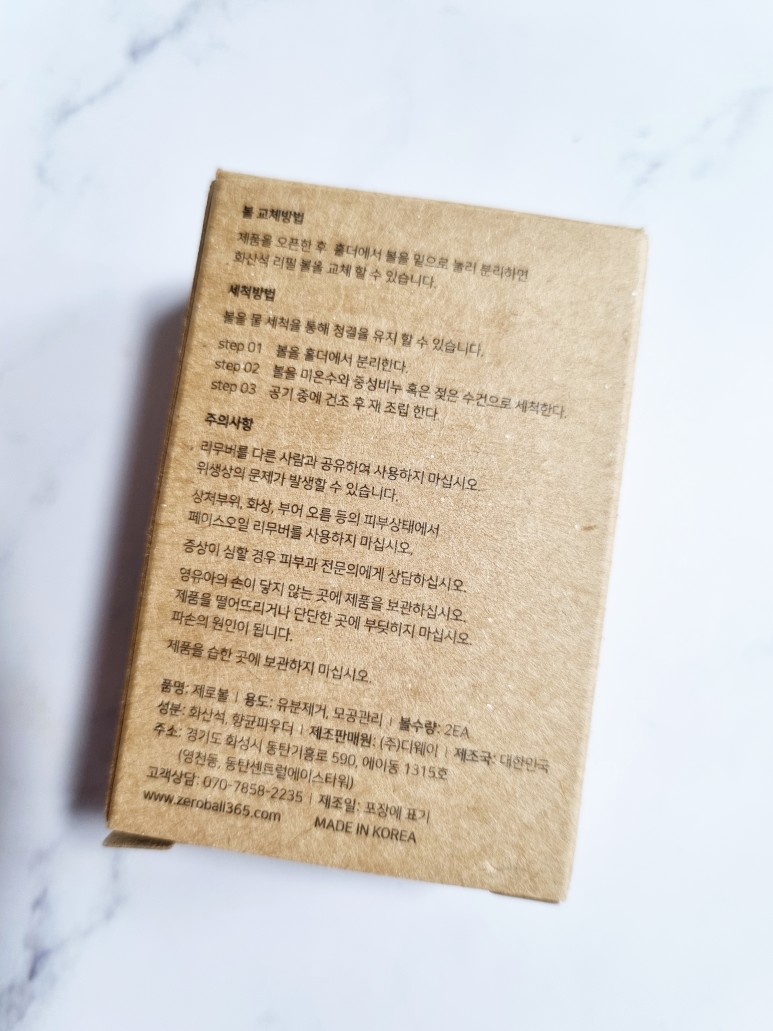 볼 교체방법
제품을 오픈한 후 홀더에서 볼을 밑으로 눌러 분리하면
화산석 리필 볼을 교체 할 수 있습니다.
세척방법
볼을 물 세척을 통해 청결을 유지 할 수 있습니다.
step 01 볼을 홀더에서 분리한다.
step 02 볼을 미온수와 중성비누 혹은 젖은 수건으로 세척한다.
step 03 공기 중에 건조 후 재 조립 한다.
주의사항
리무버를 다른 사람과 공유하여 사용하지 마십시오.
위생상의 문제가 발생할 수 있습니다.
상처부위, 화상, 부어 오름 등의 피부상태에서
페이스오일 리무버를 사용하지 마십시오.
증상이 심할 경우 피부과 전문의에게 상담하십시오.
영유아의 손이 닿지 않는 곳에 제품을 보관하십시오.
제품을 떨어뜨리거나 단단한 곳에 부딪히지 마십시오.
파손의 원인이 됩니다.
제품을 습한 곳에 보관하지 마십시오.
품명: 제로볼 | 용도: 유분제거, 모공관리 | 볼수량: 2EA
성분: 화산석, 항균파우더 | 제조판매원: (주)디웨이 | 제조국: 대한민국
주소: 경기도 화성시 동탄기흥로 590, 에이동 1315호
(영천동, 동탄센트럴에이스타워)
고객상담: 070-7858-2235 | 제조일: 포장에 표기
www.zeroball365.com MADE IN KOREA